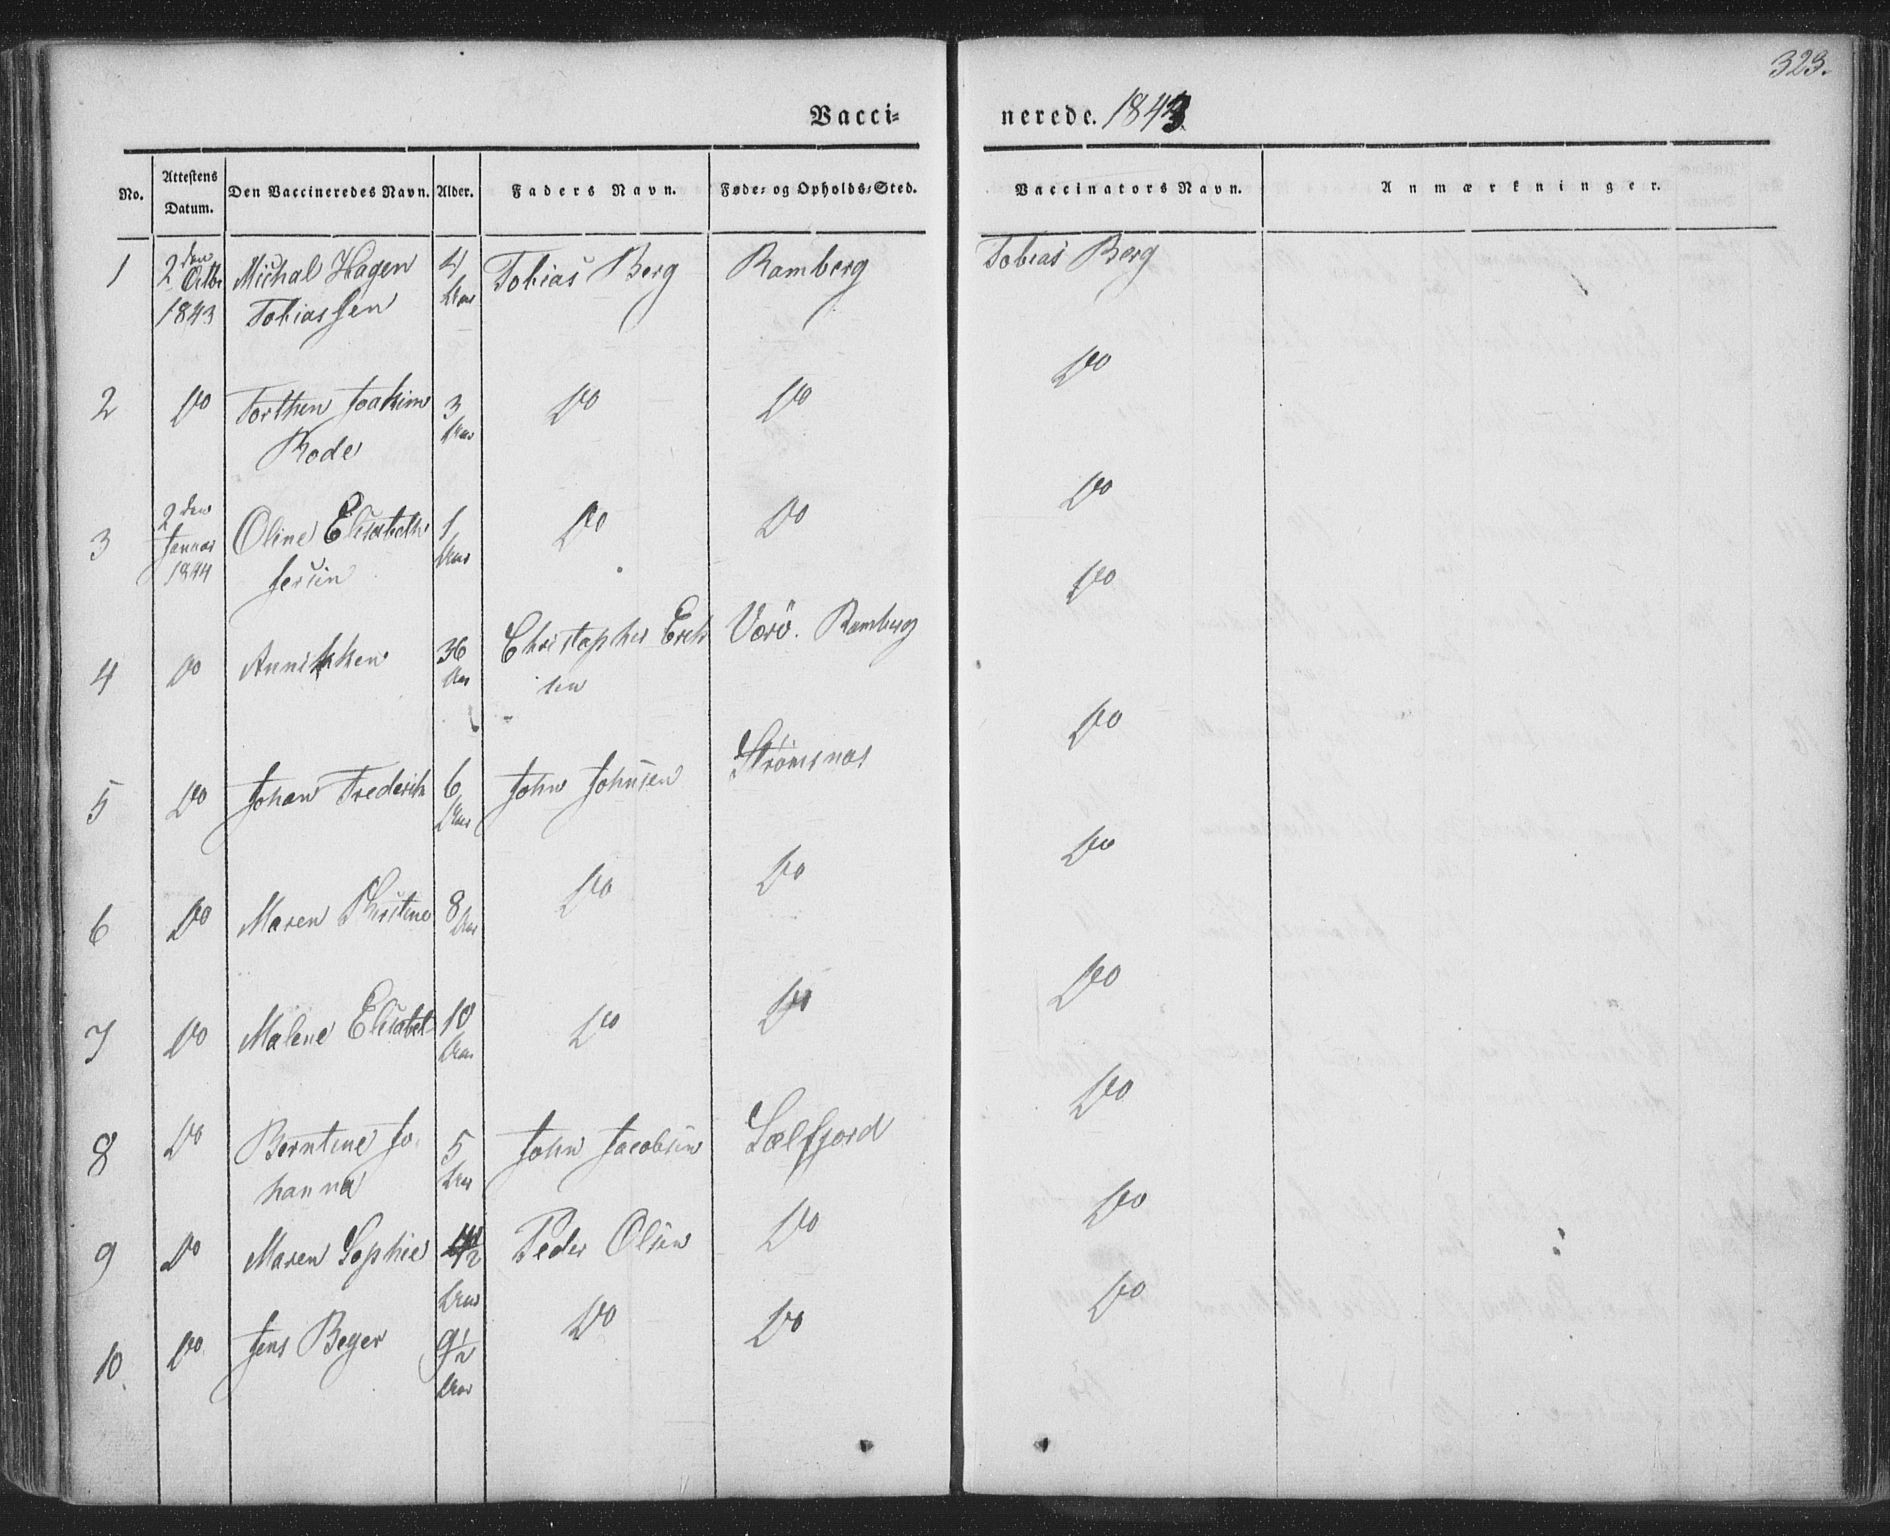 323.
Vacci= nerede. 1843
No. Attestens Datum. Den Vaccineredes Navn. Alder. Faders Navn. Føde= og Opholds=Sted. Vaccinators Navn. Anmærkninger.
1 2 den Octbr 1843 Michal Hagen Tobiassen 4 Aar Tobias Berg Ramberg Tobias Berg
2 Do Torthen Joakim Rode 3 Aar Do Do Do
3 2 den Januar 1844 Oline Elisabeth Jersin 1 Aar Do Do Do
4 Do Annikken 36 Aar Christopher Erik sen Værö. Ramberg Do
5 Do Johan Frederik 6 Aar John Johnsen Strømsnas Do
6 Do Maren Christine 8 Aar Do Do Do
7 Do Malene Elisabet 10 Aar Do Do Do
8 Do Berntine Jo hanna 5 Aar John Jacobsen Sælfjord Do
9 Do Maren Sophie Aar Peder Olsen Do Do
10 Do Jens Beyer 9 1/2 Aar Do Do Do